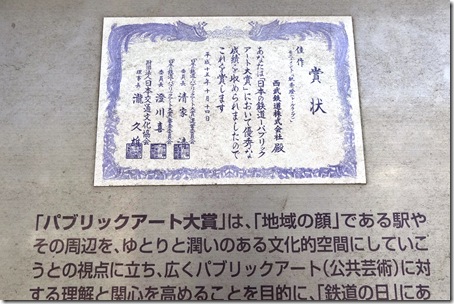 賞状
佳作
西武鉄道株式会社 殿
あなたは「日本の鉄道・パブリック
アート大賞」において優秀な
成績を収められましたので
これを賞します
平成十五年十月十四日
委員長 清家 清
委員長 澄川喜一
財団法人日本交通文化協会
理事長 瀧 久雄
「パブリックアート大賞」は、「地域の顔」である駅や
その周辺を、ゆとりと潤いのある文化的空間にしていこ
うとの視点に立ち、広くパブリックアート(公共芸術)に対
する理解と関心を高めることを目的に、「鉄道の日」にあ